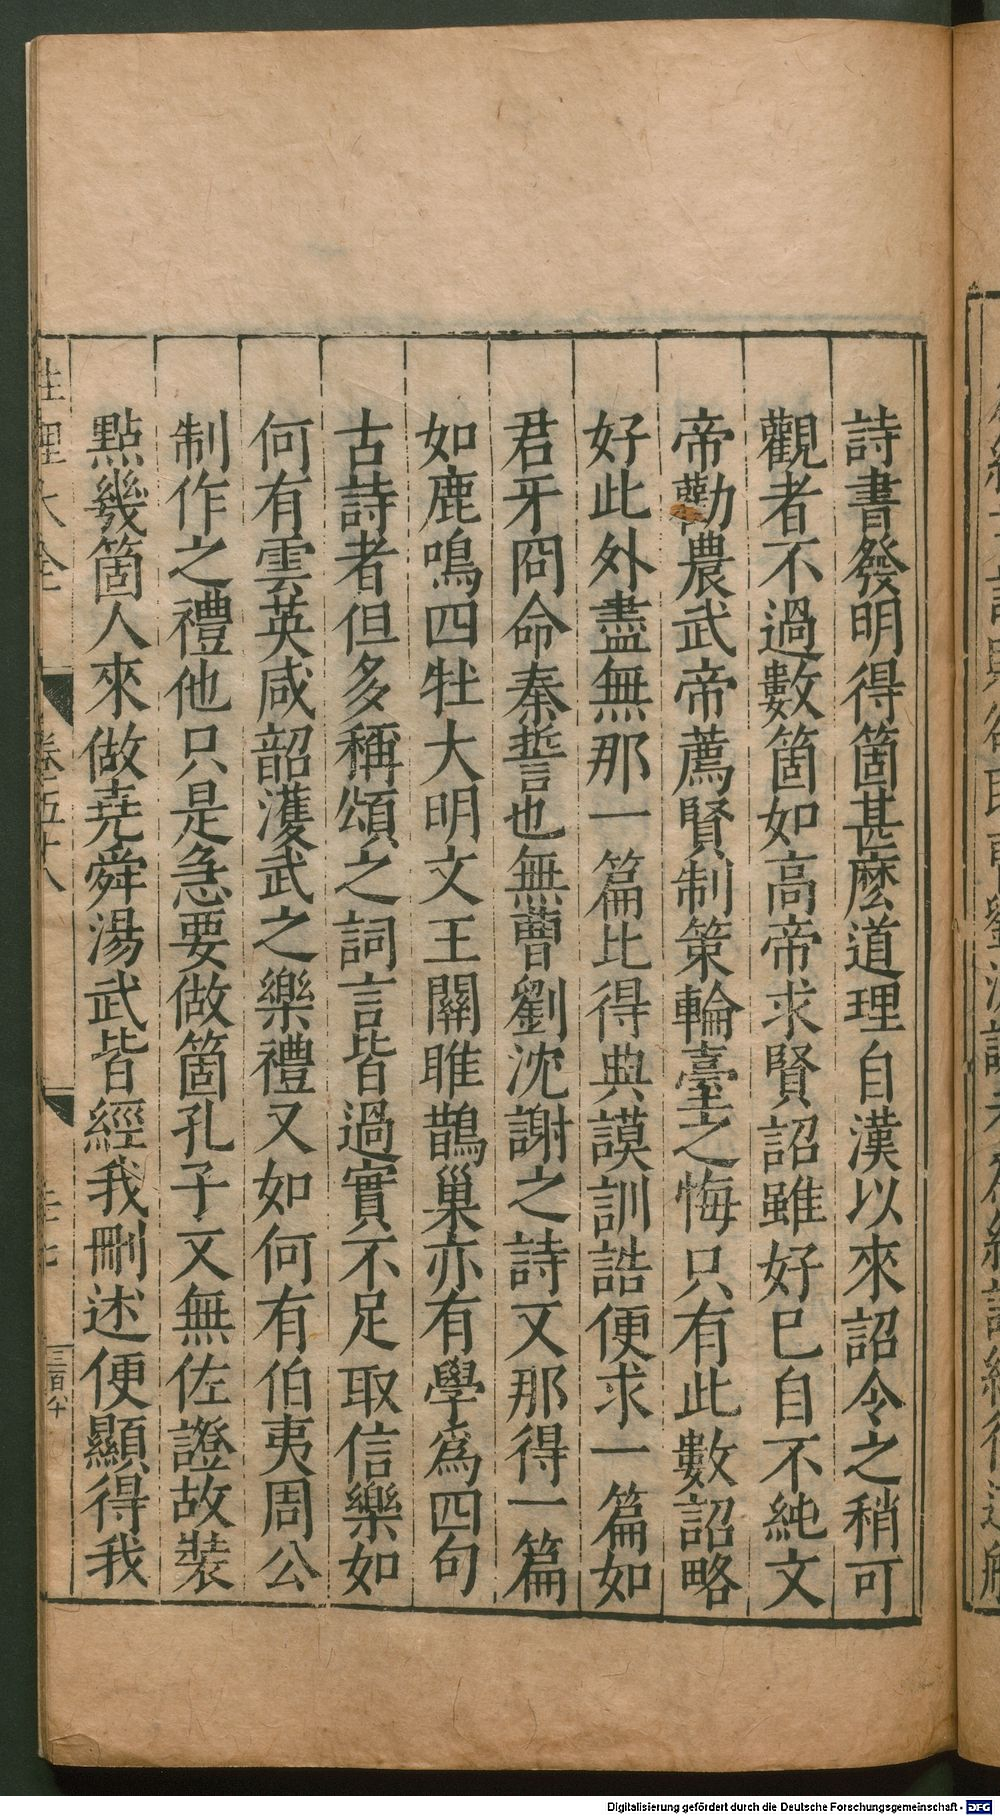 詩書發明得箇甚麽道理自漢以來詔令之稍可
觀者不過數箇如高帝求賢詔雖好已自不純文
帝勸農武帝薦賢制策輪臺之悔只有此數詔略
好此外盡無那一篇比得典謨訓誥便求一篇如
君牙冏命秦誓也無曹劉沈謝之詩又那得一篇
如鹿鳴四牡大明文王關雎鵲巢亦有學爲四句
古詩者但多稱頌之詞言皆過實不足取信樂如
何有雲英咸韶濩武之樂禮又如何有伯夷周公
制作之禮他只是急要做箇孔子又無佐證故裝
點幾箇人來做堯舜湯武皆經我刪述便顯得我
性理大全
卷五十八
三百八十
Digitalisierung gefördert durch die Deutsche Forschungsgemeinschaft - DFG